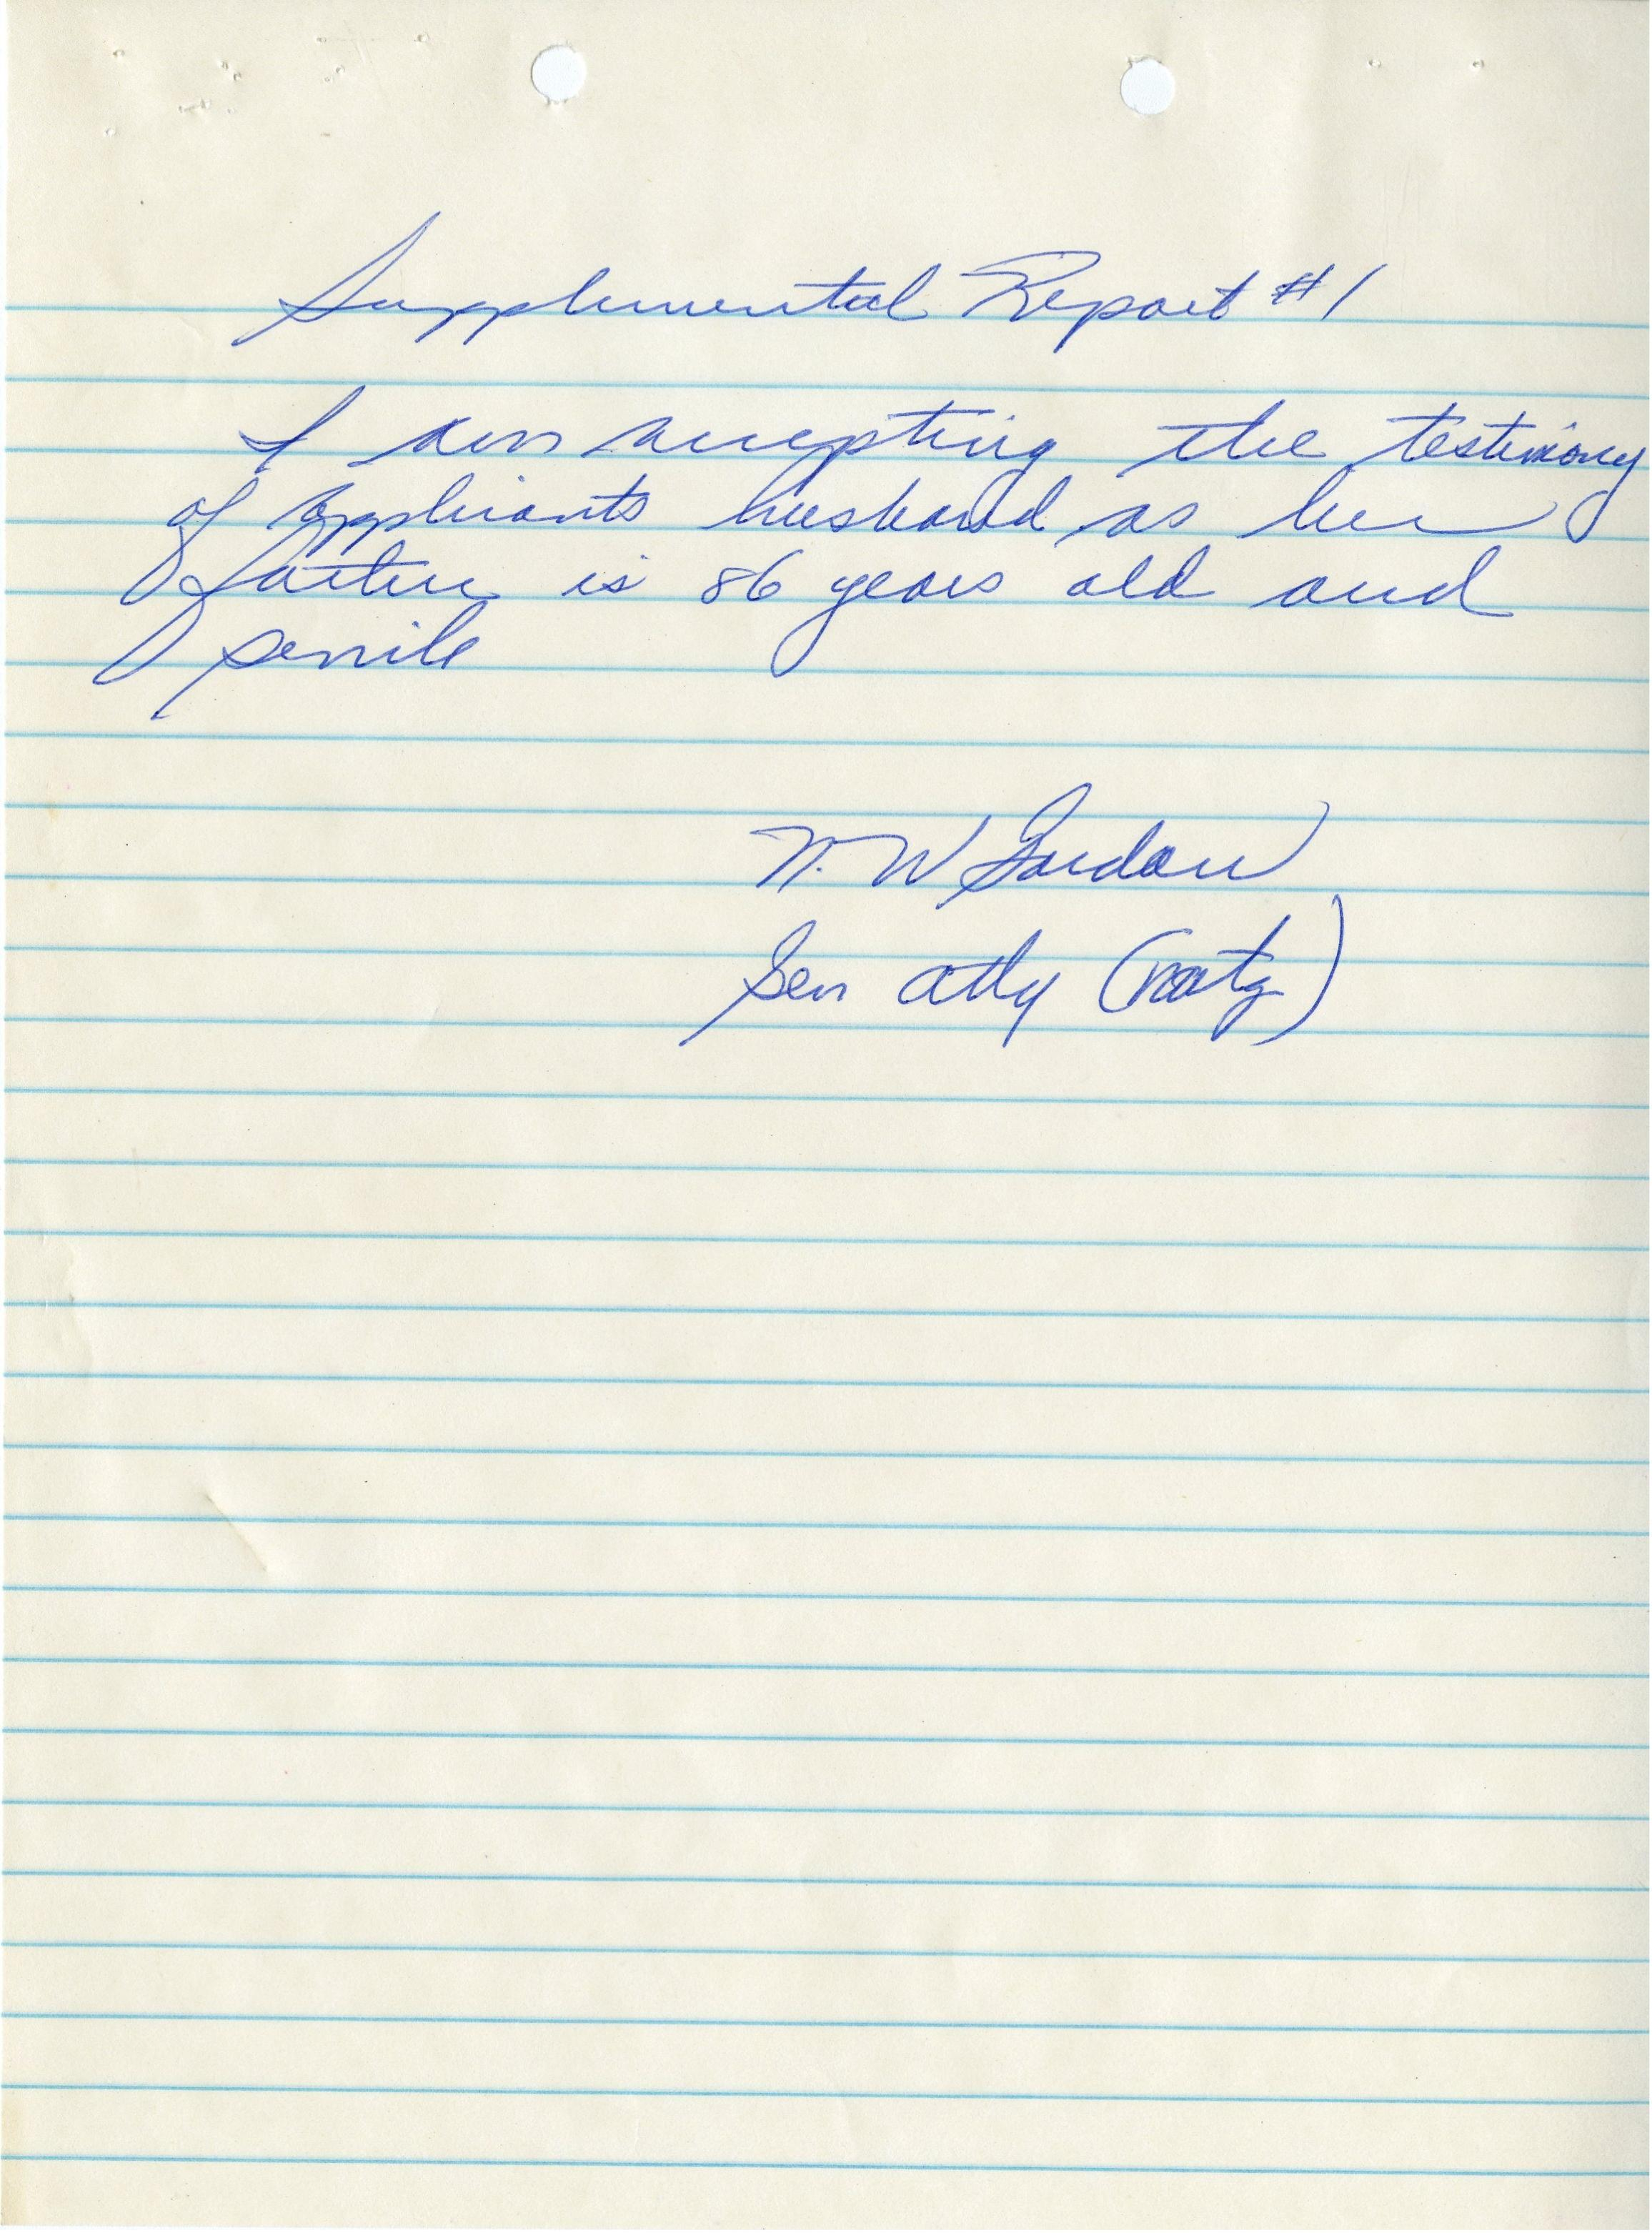 Supplemental Report #1
I am accepting the testimony
of applicants husband as her
father is 86 years old and
senile
N. W Gordon
Gen Atty (natz)